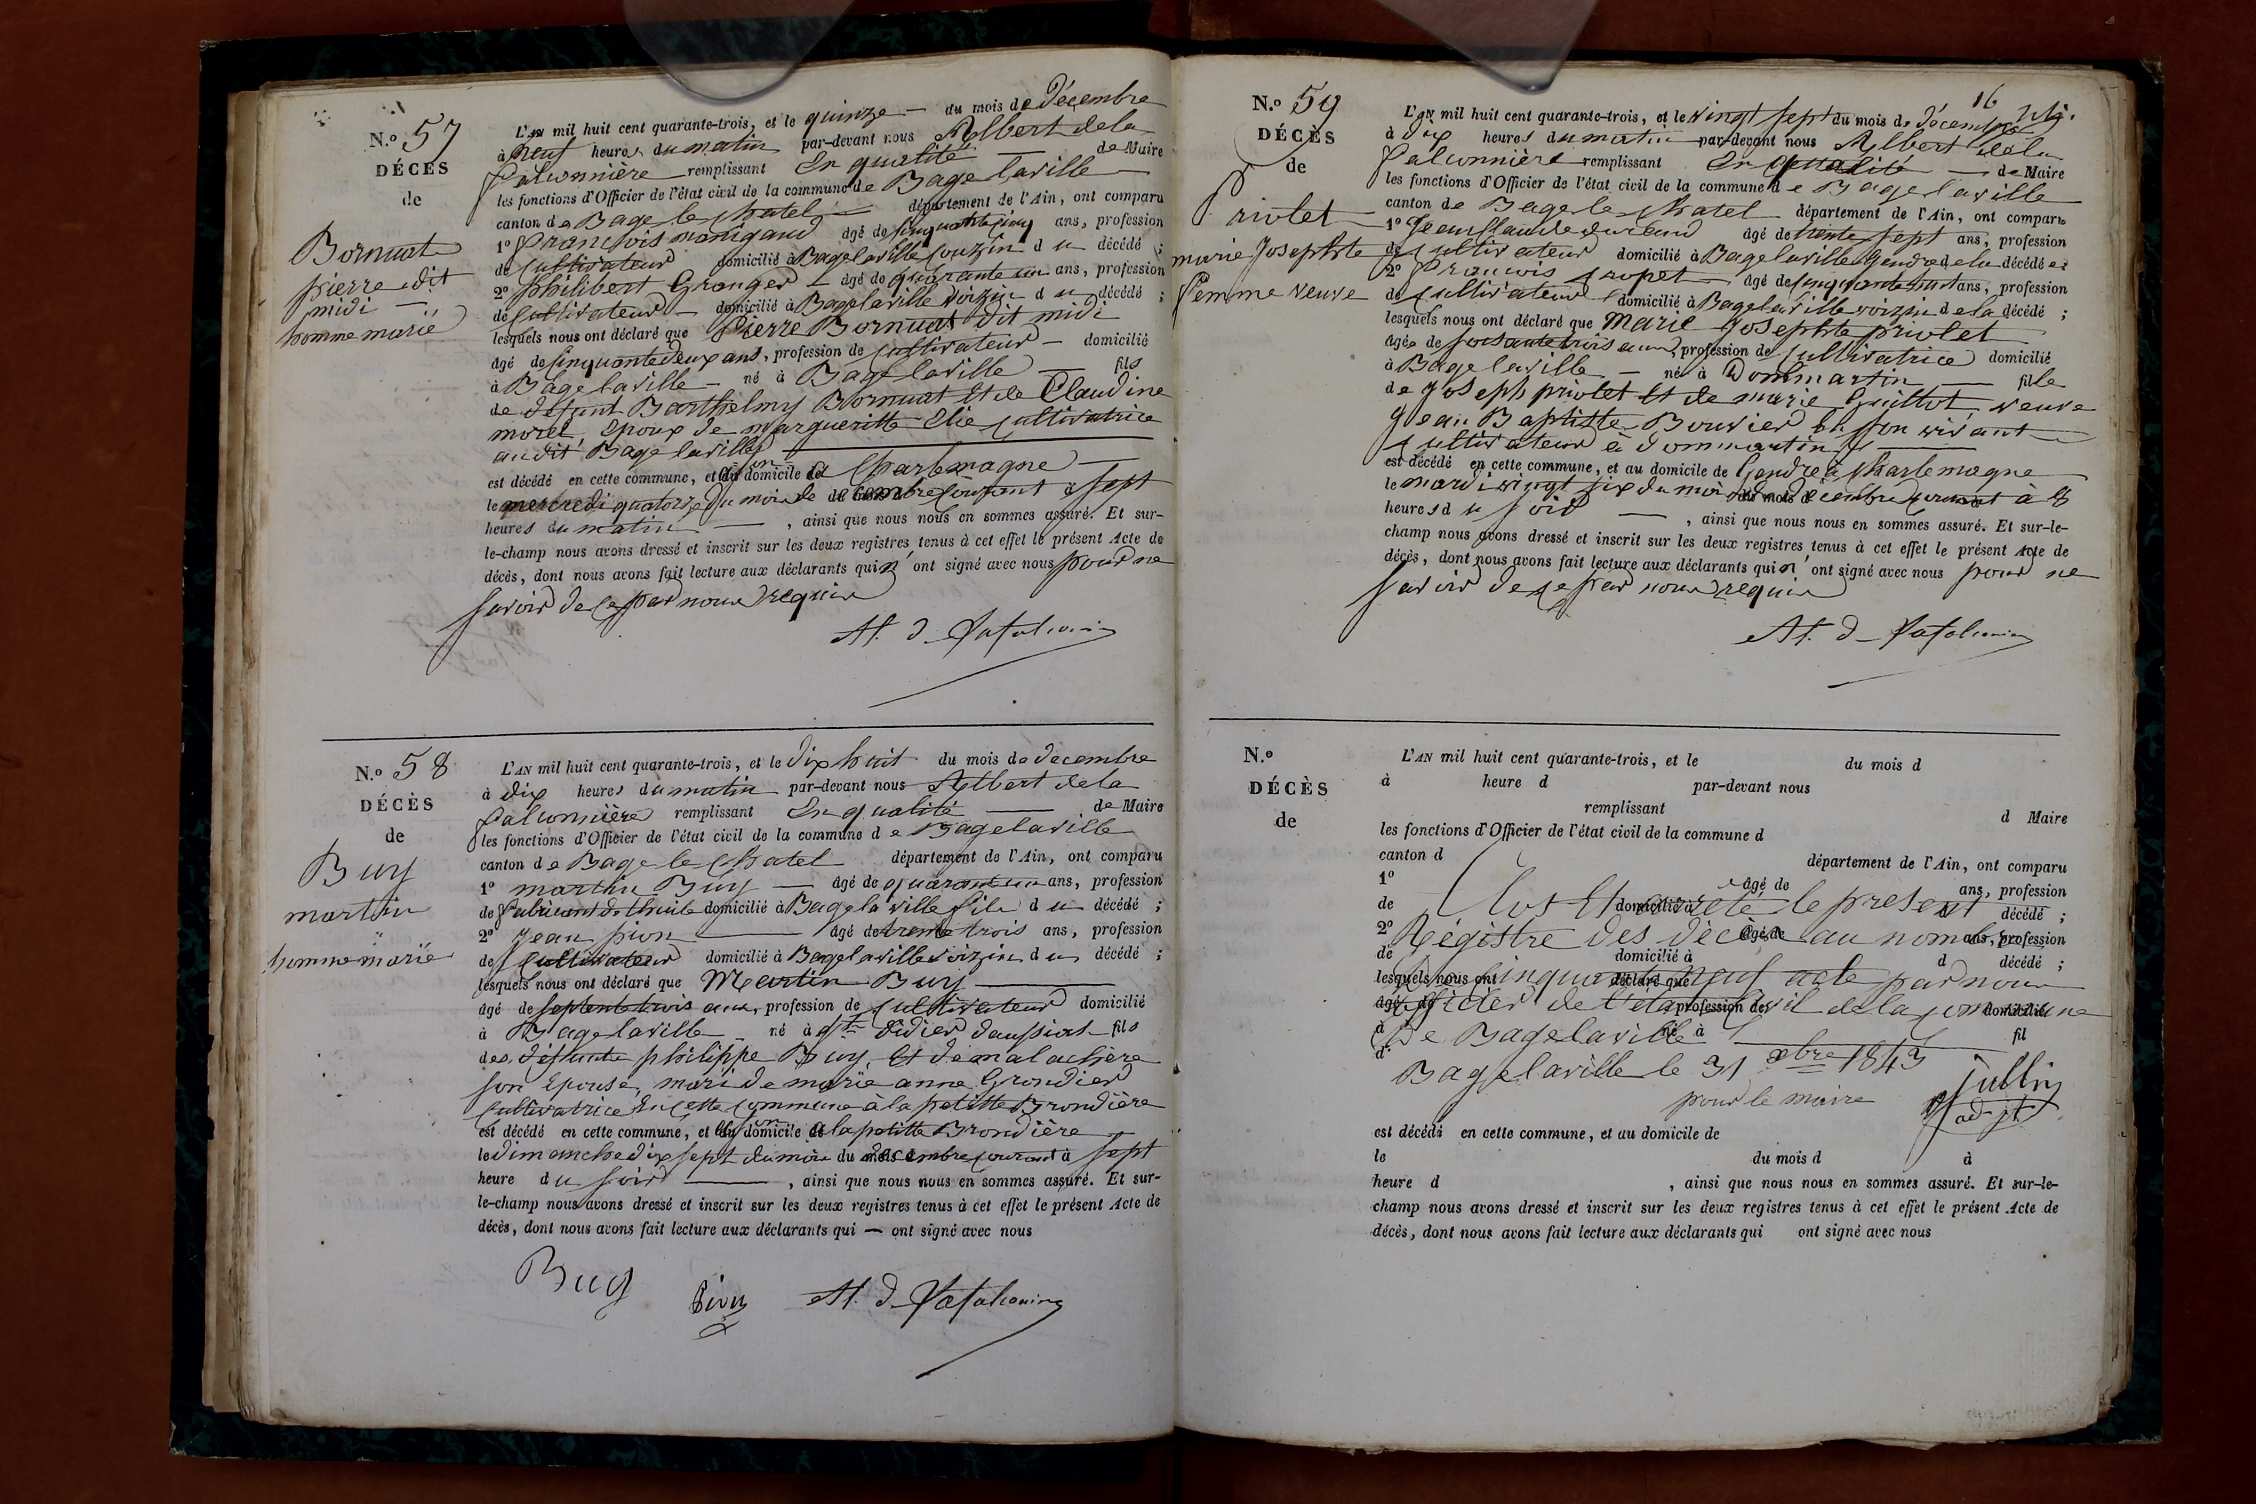 N.o 57
DÉCÈS
de
Bornuat
pierre dit
midi
homme marié
L'AN mil huit cent quarante-trois, et le quinze du mois de Décembre
à neuf heures du matin par-devant nous Albert dela
falconnière remplissant En qualité de Maire
les fonctions d'Officier de l'état civil de la commune de Bage laville
canton de Bage le chatel département de l'Ain, ont comparu
1o francois manigaud âgé de cinquante cinq ans, profession
de cultivateur domicilié à Bagelaville couzin du décédé ;
2o philibert Granger âgé de quarante un ans, profession
de cultivateur domicilié à Bagelaville voizin du décédé ;
lesquels nous ont déclaré que Pierre Bornuat dit midi
âgé de cinquante deux ans, profession de cultivateur domicilié
à Bage laville né à Bage laville fils
de défunt Barthelmy Bornuat Et de Claudine
morel, Epoux de margueritte Elie cultivatrice
audit Bage laville
est décédé en cette commune, et en son domicile de Charlemagne
le mercredi quatorze du mois de décembre courant à sept
heures du matin , ainsi que nous nous en sommes assuré. Et sur-
le-champ nous avons dressé et inscrit sur les deux registres tenus à cet effet le présent Acte de
décès, dont nous avons fait lecture aux déclarants qui n'ont signé avec nous pour ne
savoir de ce par nous requis
At. d Lafalconnière
N.o 58
DÉCÈS
de
Buy
martin
homme marié
L'AN mil huit cent quarante-trois, et le dix huit du mois de decembre
à dix heures du matin par-devant nous Albert dela
falconnière remplissant En qualité de Maire
les fonctions d'Officier de l'état civil de la commune de Bagelaville
canton de Bage le chatel département de l'Ain, ont comparu
1o martin Buy âgé de quarante un ans, profession
de fabricant d'huile domicilié à Bage la ville fils du décédé ;
2o jean pion âgé de trente trois ans, profession
de cultivateur domicilié à Bagelaville voizin du décédé ;
lesquels nous ont déclaré que Martin Buy
âgé de septente trois ans, profession de cultivateur domicilié
à Bagelaville né à st didier daussiat fils
des défunts philippe Buy Et de malachère
son Epouse, mari de marie anne Grondier
cultivatrice En cette commune à la petitte Brondière
est décédé en cette commune, et en son domicile à la petitte Brondière
le dimanche dix sept du mois du mois décembre courant à sept
heure du soir , ainsi que nous nous en sommes assuré. Et sur-
le-champ nous avons dressé et inscrit sur les deux registres tenus à cet effet le présent Acte de
décès, dont nous avons fait lecture aux déclarants qui — ont signé avec nous
Buy Pion At. d Lafalconnière
16
N.o 59
DÉCÈS
de
Priolet
marie Josephte
femme veuve
L'AN mil huit cent quarante-trois, et le vingt sept du mois de décembre
à dix heures du matin par-devant nous Albert dela
falconnière remplissant En qualité de Maire
les fonctions d'Officier de l'état civil de la commune de Bage laville
canton de Bage le chatel département de l'Ain, ont comparu
1o Jean Claude durand âgé de trente sept ans, profession
de cultivateur domicilié à Bagelaville gendre de la décédée ;
2o francois cropet âgé de cinquante huit ans, profession
de cultivateur domicilié à Bagelaville voizin de la décédé ;
lesquels nous ont déclaré que Marie Josephte priolet
âgée de soixante trois ans, profession de cultivatrice domicilié
à Bage laville née à Dommartin fille
de Joseph priolet Et de marie Guillot, veuve
Jean Baptiste Bouvier En son vivant
cultivateur à dommartin
est décédé en cette commune, et au domicile de Gendre à Charlemagne
le mardi vingt six du mois du mois décembre courant à 8
heures du soir , ainsi que nous nous en sommes assuré. Et sur-le-
champ nous avons dressé et inscrit sur les deux registres tenus à cet effet le présent Acte de
décès, dont nous avons fait lecture aux déclarants qui n'ont signé avec nous pour ne
savoir de ce par nous requis
At. d Lafalconnière
N.o
DÉCÈS
de
L'AN mil huit cent quarante-trois, et le du mois d
à heure d par-devant nous
remplissant d Maire
les fonctions d'Officier de l'état civil de la commune d
canton d département de l'Ain, ont comparu
1o âgé de ans, profession
de domicilié à décédé ;
Clos Et arreté le present
2o âgé de ans, profession
Régistre des décès au nombre
de domicilié à d décédé ;
De cinquante neuf acte par nous
lesquels nous ont déclaré que
officier de l'état Civil de la commune
âgé de profession de domicilié
De Bagelaville
à né à fil
d
Bagelaville le 31 xbre 1843
pour le maire
Jullin
adjt
est décédé en cette commune, et au domicile de
le du mois d à
heure d , ainsi que nous nous en sommes assuré. Et sur-le-
champ nous avons dressé et inscrit sur les deux registres tenus à cet effet le présent Acte de
décès, dont nous avons fait lecture aux déclarants qui ont signé avec nous